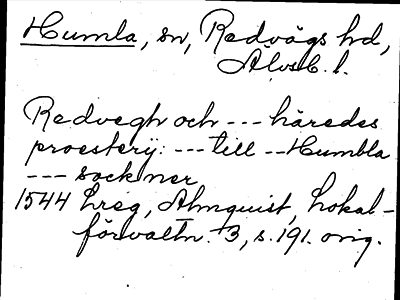 Humla, sn, Redvägs hd,
Älvsb. l.
Redvegh och --- häredes
proesterij: --- till -- Humbla
--- sockner
1544 Lreg, Almquist, Lokal-
förvaltn. 3, s. 191. orig.